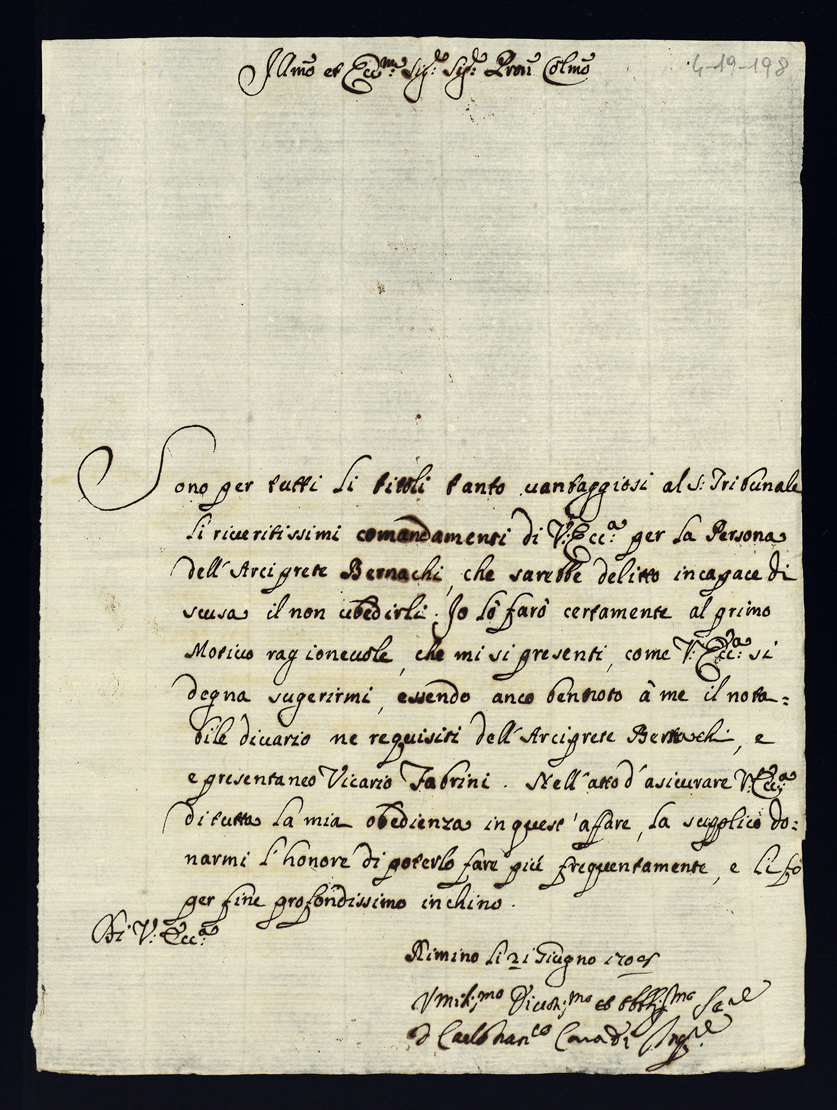 Illmo et Eccmo: Sigr: Sigr: Pron Colmo
4-19-198
Sono per tutti li titoli tanto vantaggiosi al S: Tribunale
li riveritissimi comandamenti di V: Ecca: per la Persona
dell'Arciprete Bernachi, che sarebbe delitto incapace di
scusa il non ubedirli. Io lo farò certamente al primo
Motivo ragionevole, che mi si presenti, come V: Ecca: si
degna sugerirmi, essendo anco ben noto à me il nota=
bile divario ne requisiti dell'Arciprete Bernachi, e
e presentaneo Vicario Fabrini. Nell'atto d'asicurare V: Ecca:
di tutta la mia obedienza in quest'affare, la supplico do=
narmi l'honore di poterlo fare più frequentamente, e li fò
per fine profondissimo inchino.
Di V: Ecca:
Rimino li 21 Giugno
Umilmo Divotmo et obblmo